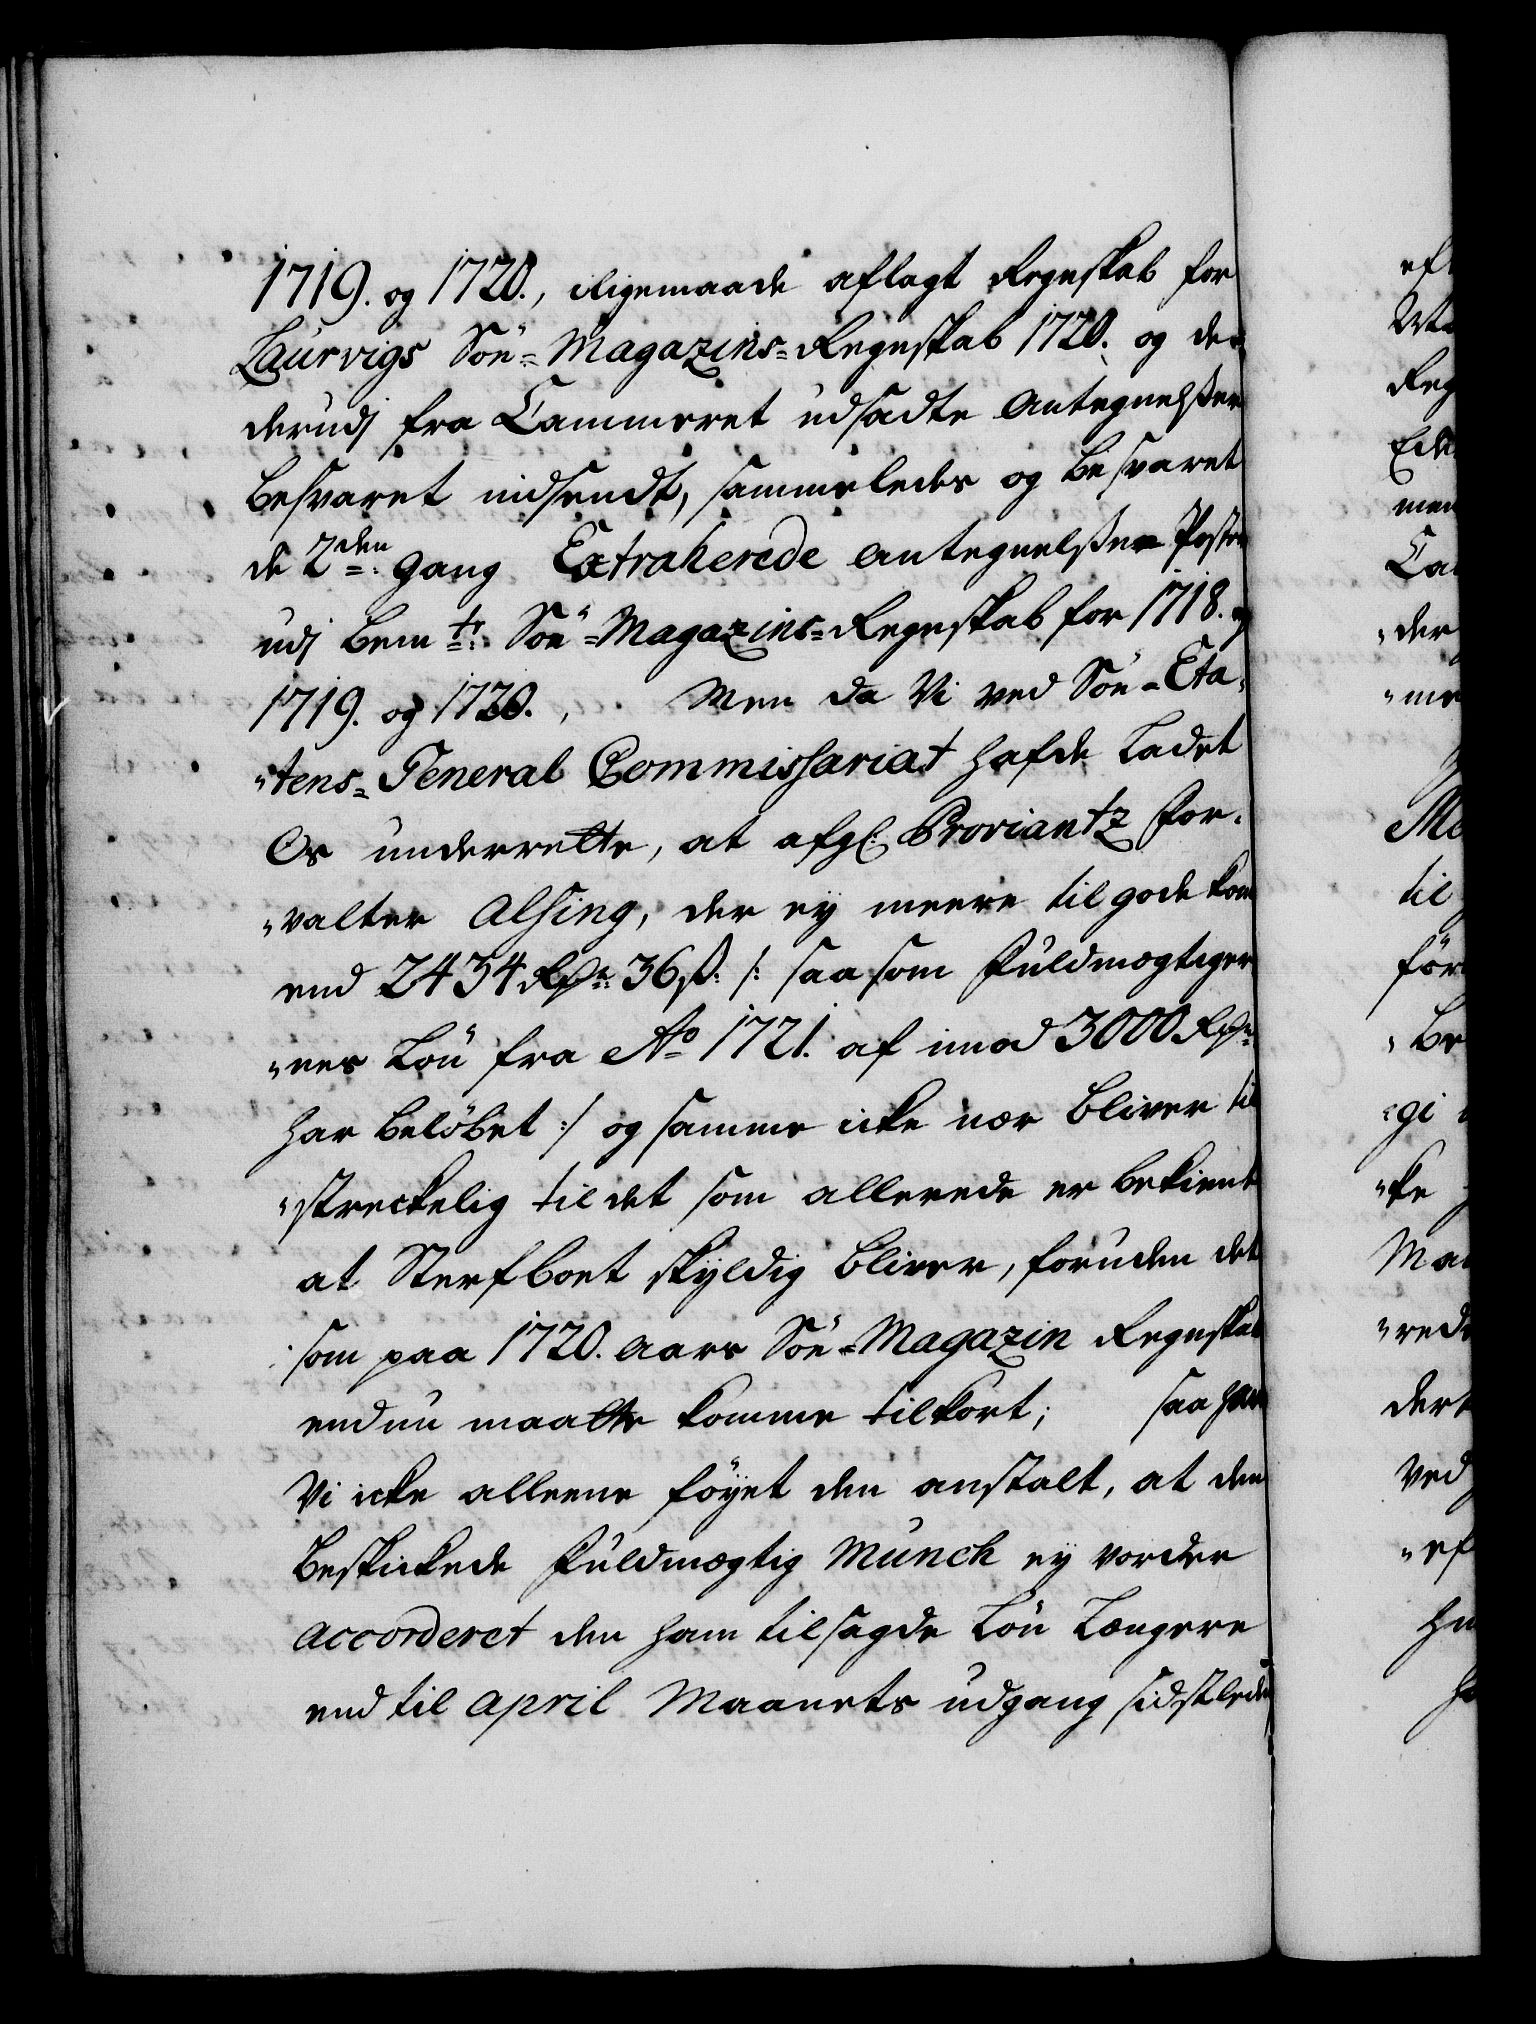 1719. og 1720., iligemaade aflagt Regnskab for
Laurvigs Söe-Magazins-Regnskab 1720. og de
derudj fra Cammeret udsadte Antegnelsser
besvaret indsendt, sammeledes og besvaret
de 2den: gang Extraherede antegnelsser Poster
udj bemte: Söe-Magazins-Regnskab for 1718. og
1719. og 1720., Men da Vi ved Söe-Eta-
"tens-General Commissariat hafde ladet
Os underrette, at afg: Proviantz for-
"valter Alsing, der ey meere til gode kom
end 2434 Rdr: 36 ß: /: saasom Fuldmægtigen
"nes Lön fra Ao 1721. af imod 3000 Rdr:
har belöbet :/ og samme icke nær bliver til
"streckelig til det som allerede er bekient
at Sterfboet skyldig bliver, foruden det
som paa 1720. aars Söe-Magazin Regnskab
endnu maatte komme tilkort; saa har
Vi icke alleene föyet den anstalt, at den
beskickede Fuldmægtig Munch ey vorder
accorderet den ham tilsagde Lön Længere
end til April Maanets udgang sidstleden